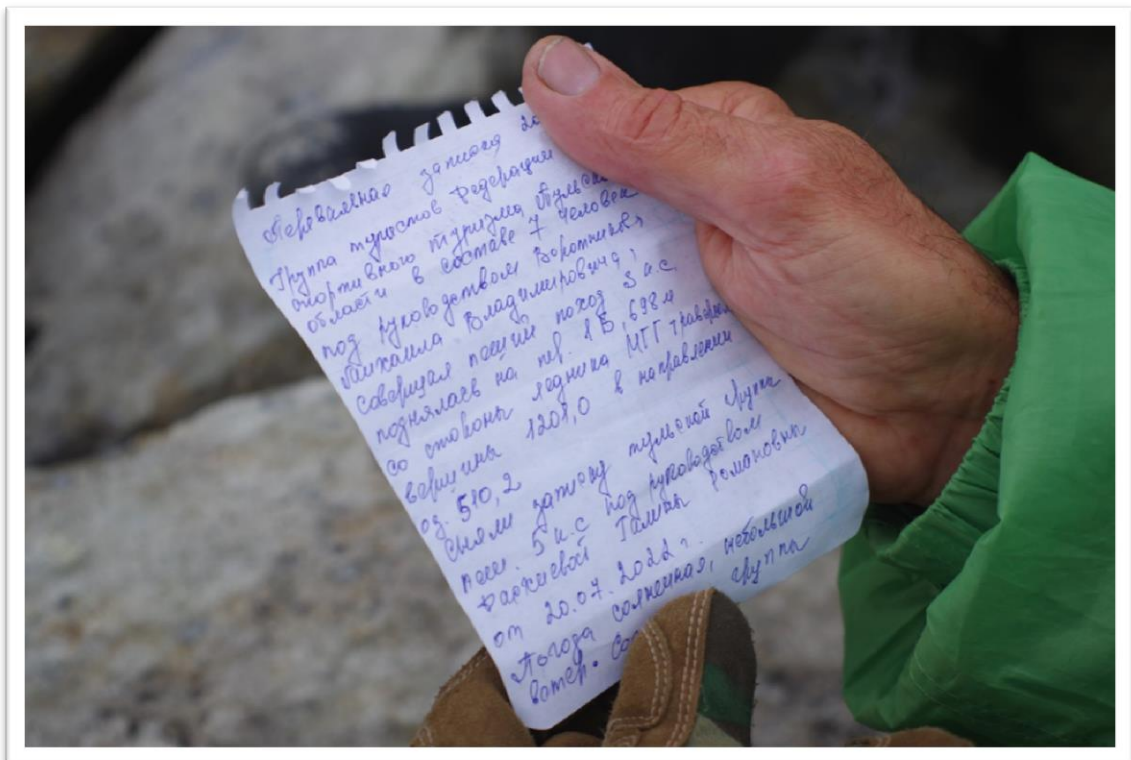 Перевальная записка 20
Группа туристов Федерации
спортивного туризма Тульско
области в составе 7 человек
под руководством Воротников
Михаила Владимировича,
совершая пеший поход 3 к.с
поднялась на пер. 1Б, 698м
со стороны ледника МГГ траверсом
вершины 1201,0 в направлении
оз. 510,2
Сняли записку тульской группы
пеш. 5 к.с под руководством
Галины Романовны
от 20.07.2022 г.
Погода солнечная, небольшой
ветер. группы